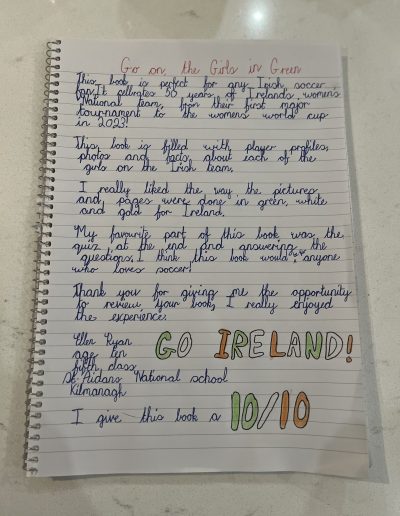 Go on, the Girls in Green
This book is perfect for any Irish soccer
fan. It celbrates 50 years of Irelands women's
National team, from their first major
tournament to the womens world cup
in 2023!
This book is filled with player profiles,
photos and facts about each of the
girls on the Irish team.
I really liked the way the pictures
and pages were done in green, white
and gold for Ireland.
My favourite part of this book was the
quiz at the end and answering the
questions. I think this book would anyone
who loves soccer!
Thank you for giving me the opportunity
to review your book, I really enjoyed
the experience.
Ellen Ryan
age ten
fifth class
St Aidans National school
Kilmanagh
GO IRELAND!
I give this book a 10/10